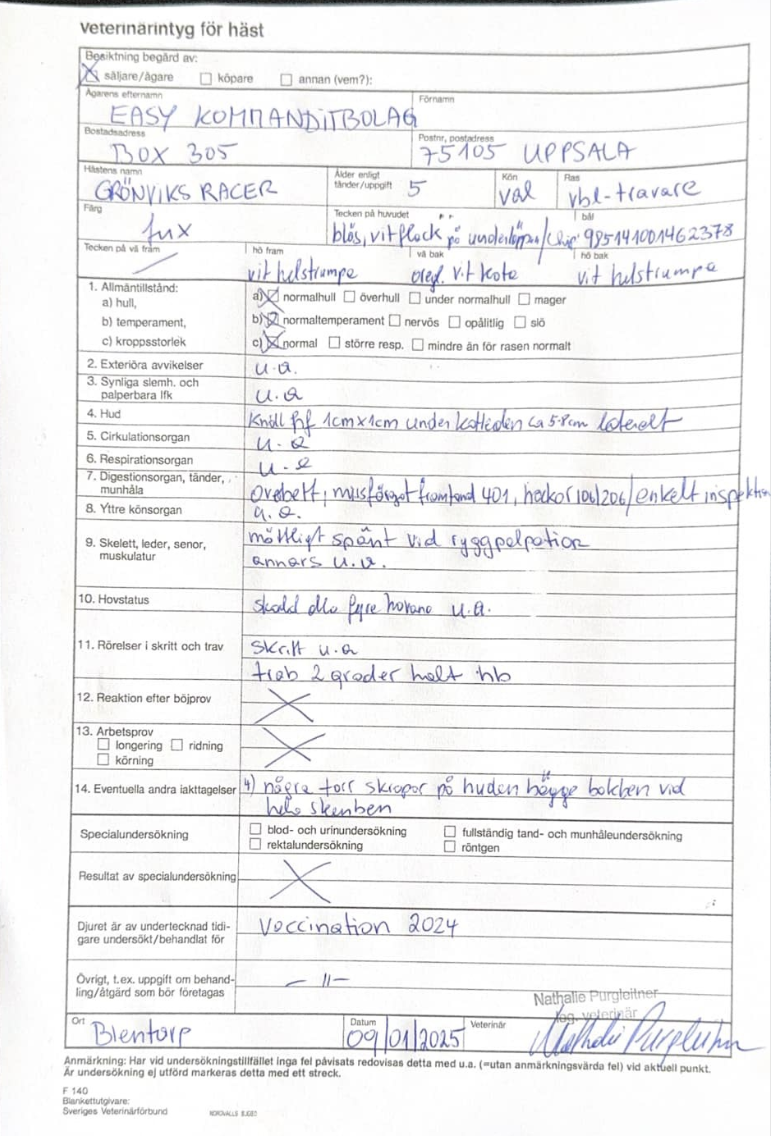 Veterinärintyg för häst
Besiktning begärd av:
säljare/ägare köpare annan (vem?):
Ägarens efternamn Förnamn
EASY KOMMANDITBOLAG
Bostadsadress Postnr, postadress
BOX 305 75105 UPPSALA
Hästens namn Ålder enligt tänder/uppgift Kön Ras
GRÖNVIKS RACER 5 val vbl-travare
Färg Tecken på huvudet bål
fux blås, vit fläck på underläppen/Chip 985141001462378
Tecken på vä fram hö fram vä bak hö bak
vit helstrumpa oregl. vit kota vit helstrumpa
1. Allmäntillstånd:
a) hull, a) normalhull överhull under normalhull mager
b) temperament, b) normaltemperament nervös opålitlig slö
c) kroppsstorlek c) normal större resp. mindre än för rasen normalt
2. Exteriöra avvikelser u.a.
3. Synliga slemh. och
palperbara lfk u.a
4. Hud Knöll 1cm x 1cm under ca 5-8cm lateralt
5. Cirkulationsorgan u-a
6. Respirationsorgan u-a
7. Digestionsorgan, tänder,
munhåla överbett, musfärgat framtand 401, hackor 106/206/enkelt inspektion
8. Yttre könsorgan u.a.
9. Skelett, leder, senor,
muskulatur måttligt spänt vid ryggpalpation
annars u.a.
10. Hovstatus skodd alla fyra hovarna u.a.
11. Rörelser i skritt och trav skritt u.a
trab 2 grader halt hb
12. Reaktion efter böjprov
13. Arbetsprov
longering ridning
körning
14. Eventuella andra iakttagelser 4) några torr skrapor på huden bägge bakben vid
hela skenben
Specialundersökning blod- och urinundersökning fullständig tand- och munhåleundersökning
rektalundersökning röntgen
Resultat av specialundersökning
Djuret är av undertecknad tidi-
gare undersökt/behandlat för Vaccination 2024
Övrigt, t.ex. uppgift om behand-
ling/åtgärd som bör företagas — 11 —
Nathalie Purgleitner
leg. veterinär
Ort Datum Veterinär
Blentarp 09/01/2025 Nathalie Purgleitner
Anmärkning: Har vid undersökningstillfället inga fel påvisats redovisas detta med u.a. (=utan anmärkningsvärda fel) vid aktuell punkt.
Är undersökning ej utförd markeras detta med ett streck.
F 140
Blankettutgivare:
Sveriges Veterinärförbund